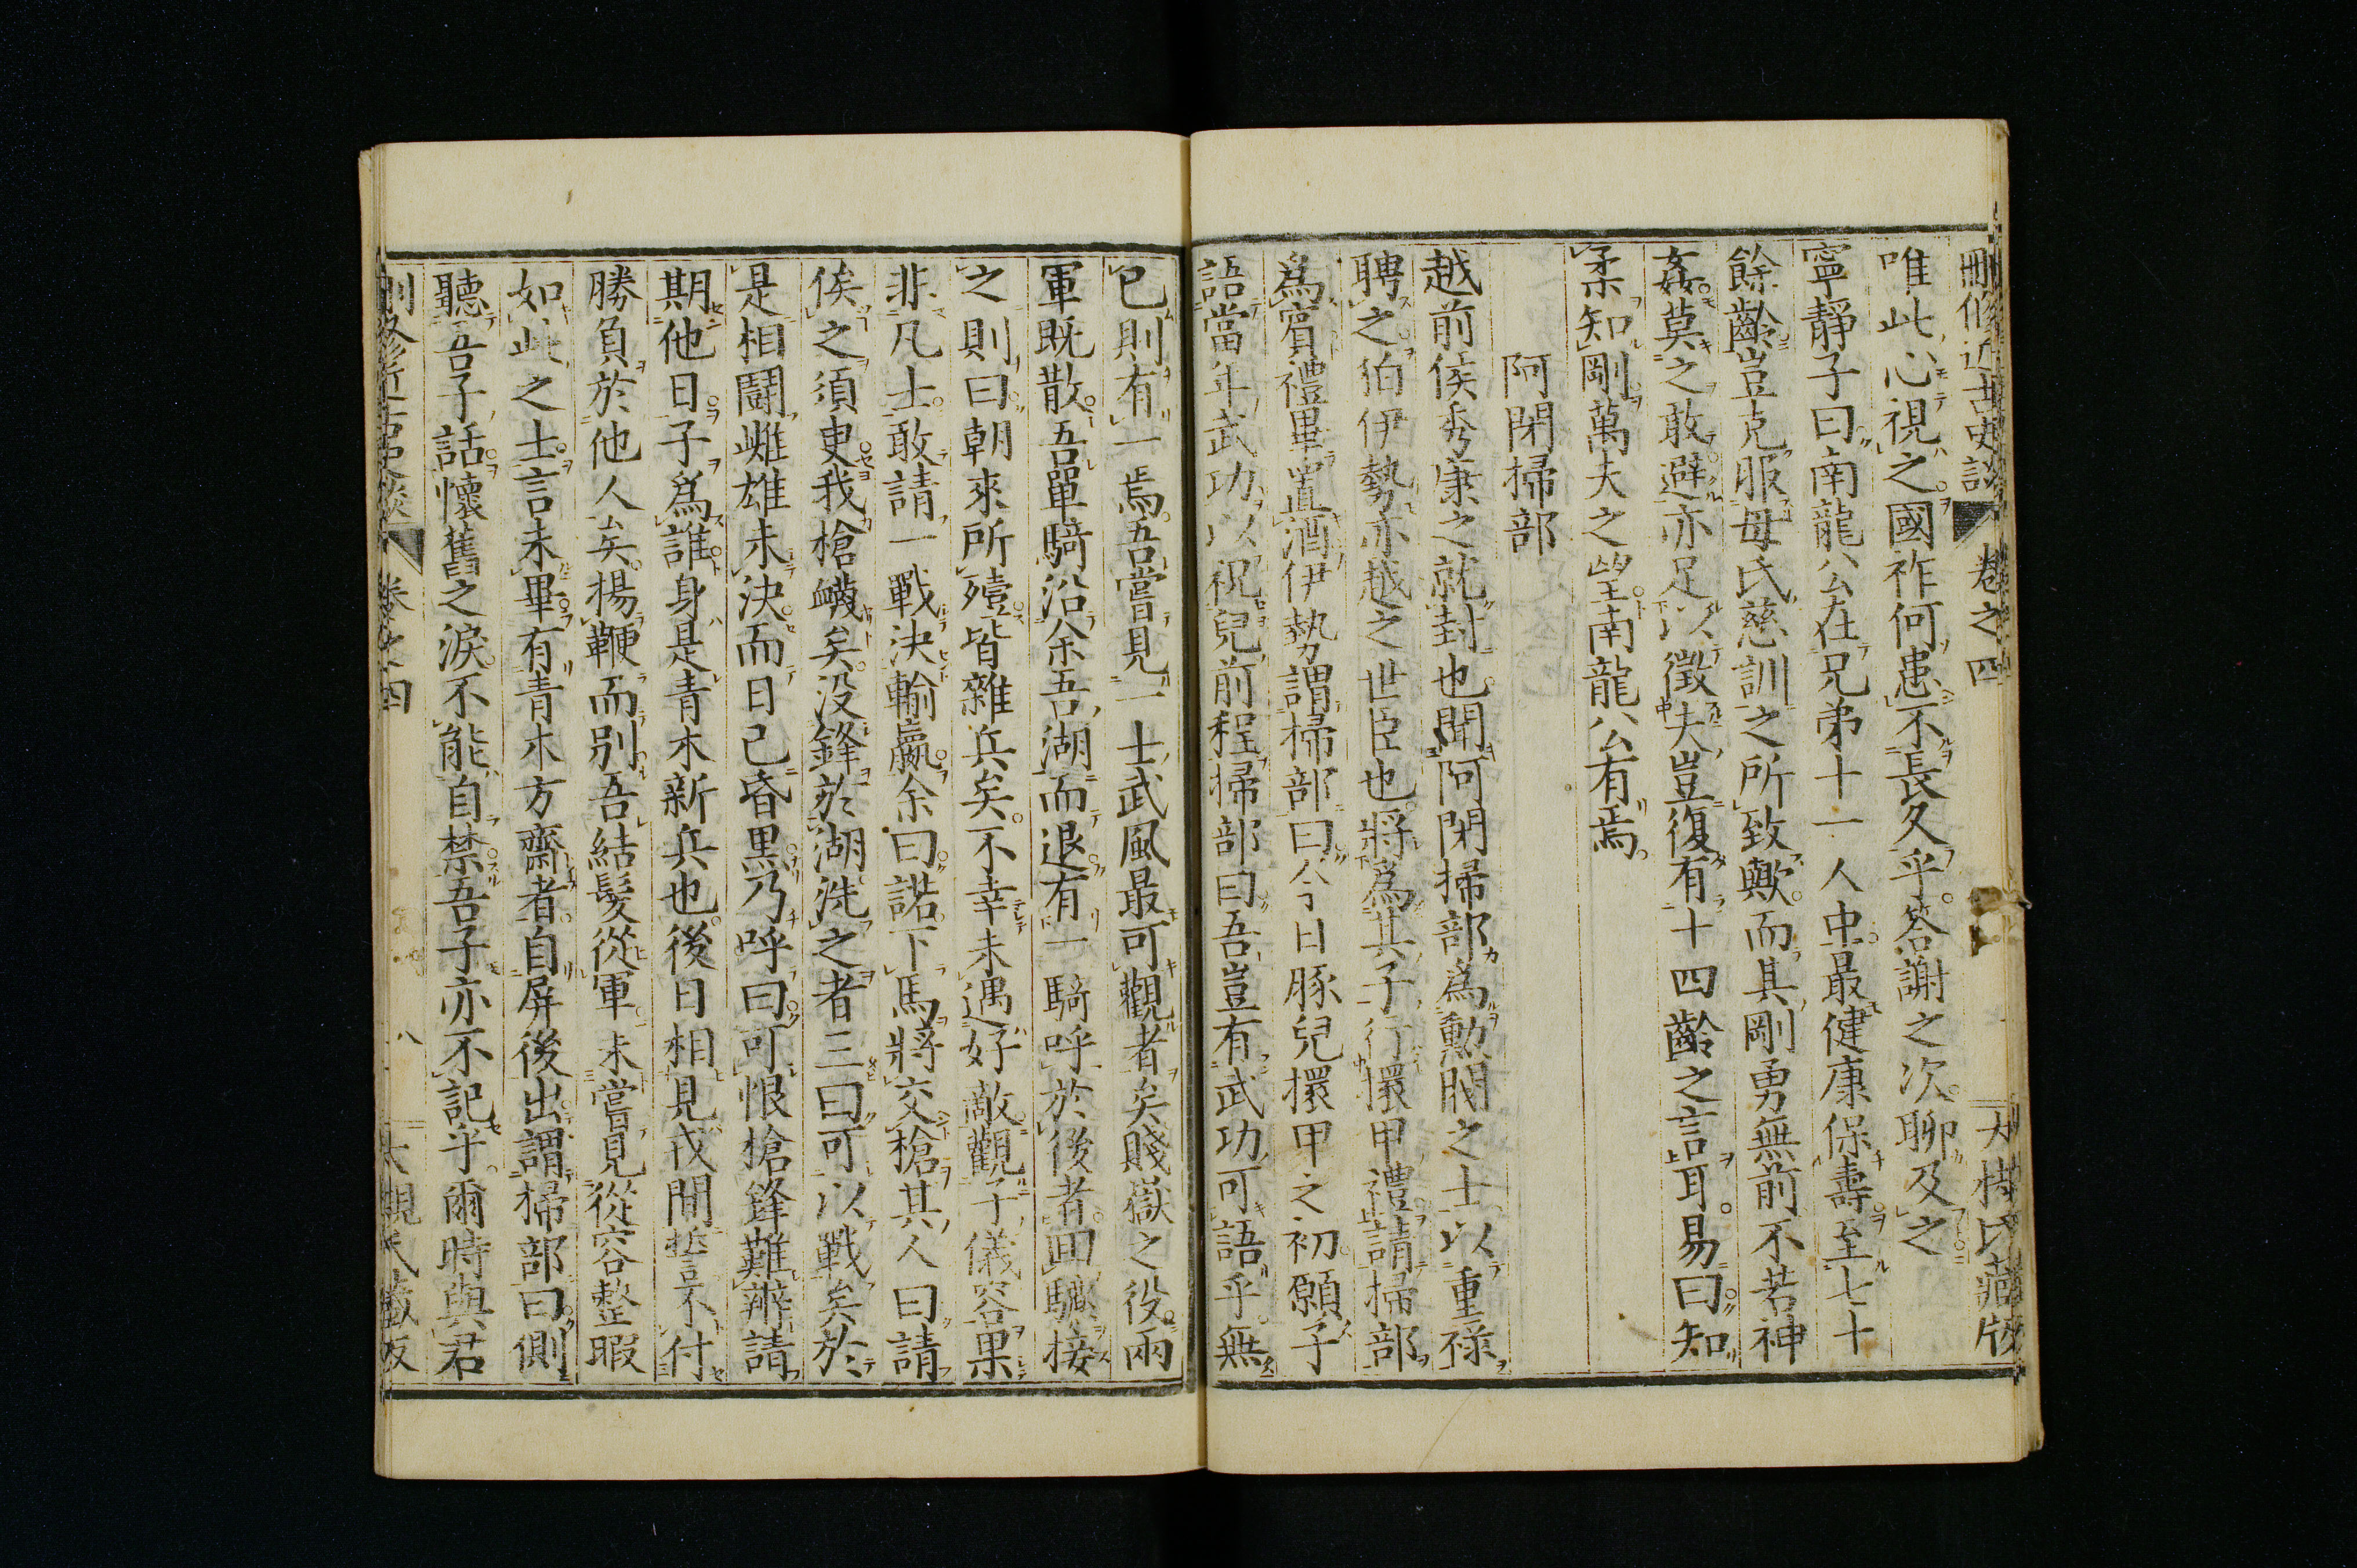 刪修近古史談 卷之四 大槻氏藏版
唯此心視之國祚何患不長久乎答謝之次聊及之
寧靜子曰南龍公在兄弟十一人中最健康保壽至七十
餘齡豈克服母氏慈訓之所致歟而其剛勇無前不若神
姦莫之敢避亦足以徵夫豈復有十四齡之言耳易曰知
柔知剛萬夫之望南龍公有焉
阿閉掃部
越前侯秀康之就封也聞阿閉掃部為勳閥之士以重祿
聘之伯伊勢亦越之世臣也將為其子行擐甲禮請掃部
為賓禮畢置酒伊勢謂掃部曰今日豚兒擐甲之初願子
語當年武功以祝兒前程掃部曰吾豈有武功可語乎無
已則有一焉吾嘗見一士武風最可觀者矣賤嶽之役兩
軍既散吾單騎沿余吾湖而退有一騎呼於後者回驅接
之則曰朝來所殪皆雜兵矣不幸未遇好敵觀子儀容果
非凡士敢請一戰決輸贏余曰諾下馬將交槍其人曰請
俟之須臾我槍衊矣沒鋒於湖洗之者三曰可以戰矣於
是相鬪雌雄未決而日已昏黑乃呼曰可恨槍鋒難辨請
期他日子為誰身是青木新兵也後日相見戎間誓不付
勝負於他人矣揚鞭而別吾結髮從軍未嘗見從容整暇
如此之士言未畢有青木方齋者自屏後出謂掃部曰側
聽吾子話懷舊之淚不能自禁吾子亦不記乎爾時與君
刪修近古史談 卷之四 八 大槻氏藏版